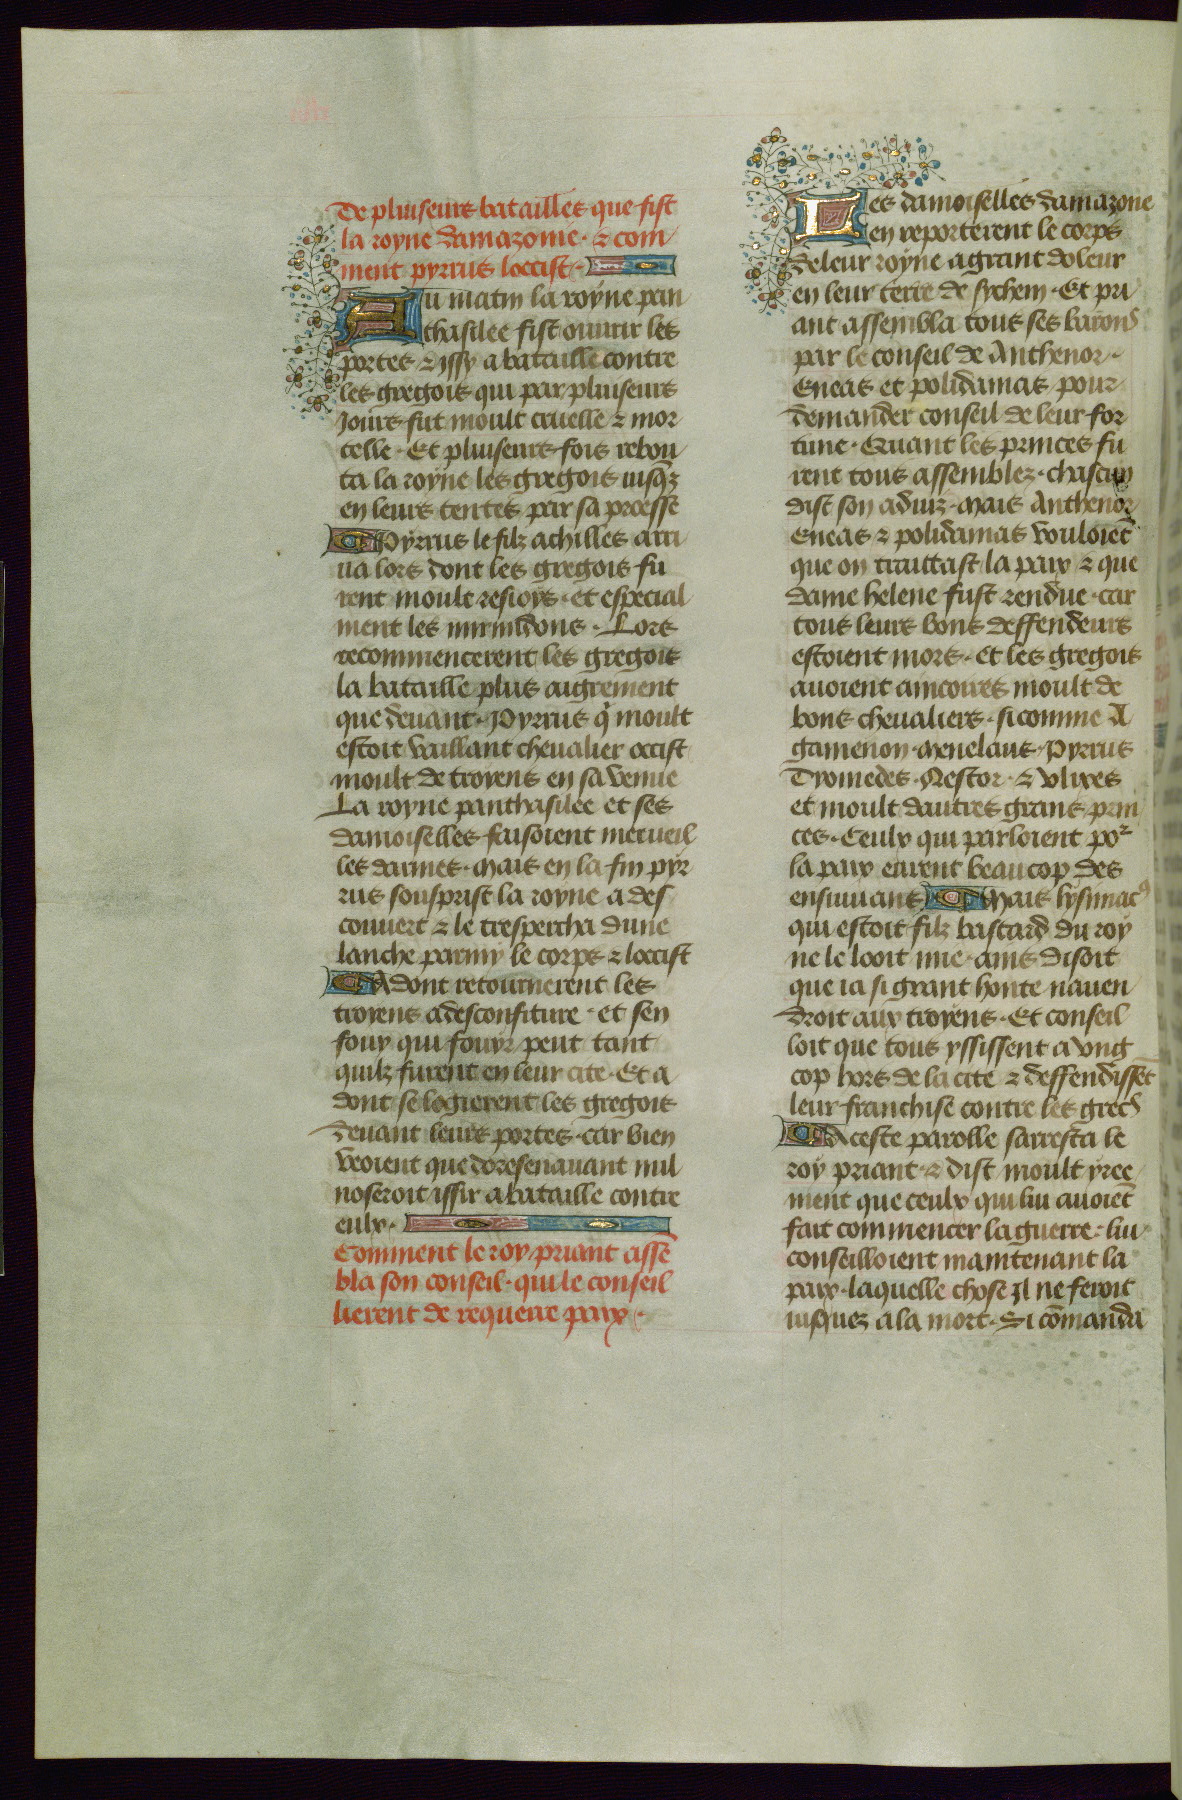 De pluiseurs batailles que fist
la royne damazonie · ⁊ com
ment pyrrus loccist ·
Au matin la royne pan
thasilee fist ouurir les
portes · ⁊ yssy a bataille contre
les gregois qui par pluiseurs
Jours fut moult cruelle ⁊ mor
telle · Et pluiseurs fois rebou
ta la royne les gregois iusq̃z
en leurs tentes par sa proesse
Pyrrus le filz achilles arri
ua lors dont les gregois fu
rent moult resioys · et especial
ment les mirmidons · Lors
recommencerent les gregois
la bataille plus aigrement
que deuant · Pyrrus q̃ moult
estoit vaillant cheualier occist
moult de troyens en sa venue
La royne panthasilee et ses
damoiselles faisoient merueil
les darmes · Mais en la fin pyr
rus sousprist la royne a des
couuert ⁊ le tresпercha dune
lanche parmy le corps ⁊ loccist
Adont retournerent les
troyens a desconfiture · et sen
fouy qui fouyr peut tant
quilz furent en leur cite · Et a
dont se logierent les gregois
deuant leurs portes · car bien
veoient que doresenauant nul
noseroit issir a bataille contre
eulx ·
Comment le roy priant assẽ
bla son conseil · qui le conseil
lierent de requerre paix ·
Les damoiselles damazone
en reporterent le corps
de leur royne a grant doleur
en leur terre de sychem · Et pri
ant assembla tous ses barons
par le conseil de Anthenor ·
Eneas et polidamas pour
demander conseil de leur for
tune · Quant les princes fu
rent tous assemblez · chascun
dist son aduiz · Mais Anthenor
Eneas ⁊ polidamas vouloiẽt
que on traittast la paix ⁊ que
dame helene fust rendue · car
tous leurs bons deffendeurs
estoient mors · Et les gregois
auoient aincoires moult de
bons cheualiers · si comme A
gamenon · Menelaus · Pyrrus
Dyomedes · Nestor · ⁊ vlixes
et moult dautres grans prin
ces · Ceulx qui parloient poʳ
la paix eurent beaucop des
ensuiuans Mais lysimacꝰ
qui estoit filz bastard du roy
ne le looit mie · ains disoit
que ia si grant honte nauen
droit aux troyens · Et conseil
loit que tous yssissent a vng
cop hors de la cite ⁊ deffendissẽt
leur franchise contre les grecs
A ceste parolle sarresta le
roy priant · ⁊ dist moult yree
ment que ceulx qui lui auoiẽt
fait commencer la guerre · lui
conseilloient maintenant la
paix · laquelle chose Jl ne feroit
iusquez a la mort · Si cõmanda